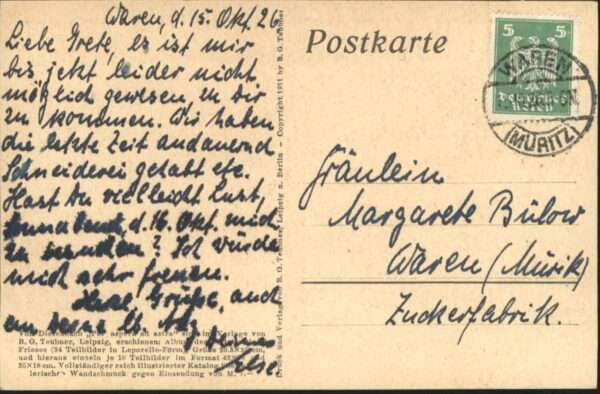 Waren, d. 15. Okt. 26
Liebe Grete, es ist mir
bis jetzt leider nicht
möglich gewesen, zu dir
zu kommen. Wir haben
die letzte Zeit andauernd
Schneiderei gehabt etc.
Hast Du vielleicht Lust,
Sonnabend, d. 16. Okt. mich
zu besuchen? Ich würde
mich sehr freuen.
Herzl. Grüße, auch
an Deine
Deines
Else
Von Diefenbachs „Per aspera ad astra" sind im Verlage von
B. G. Teubner, Leipzig, erschienen Album, die
Frieses (34 Teilbilder in Leporello-Form,
und hieraus einzeln je 10 Teilbilder im Format
35×18 cm. Vollständiger reich illustrierter Katalog
lerischer Wandschmuck gegen Einsendung von M.
Druck und Verlag von B. G. Teubner, Leipzig u. Berlin – Copyright 1911 by B. G. Teubner
Postkarte
5 5
WAREN
(MÜRITZ)
Fräulein
Margarete Bülow
Waren (Müritz)
Zuckerfabrik.